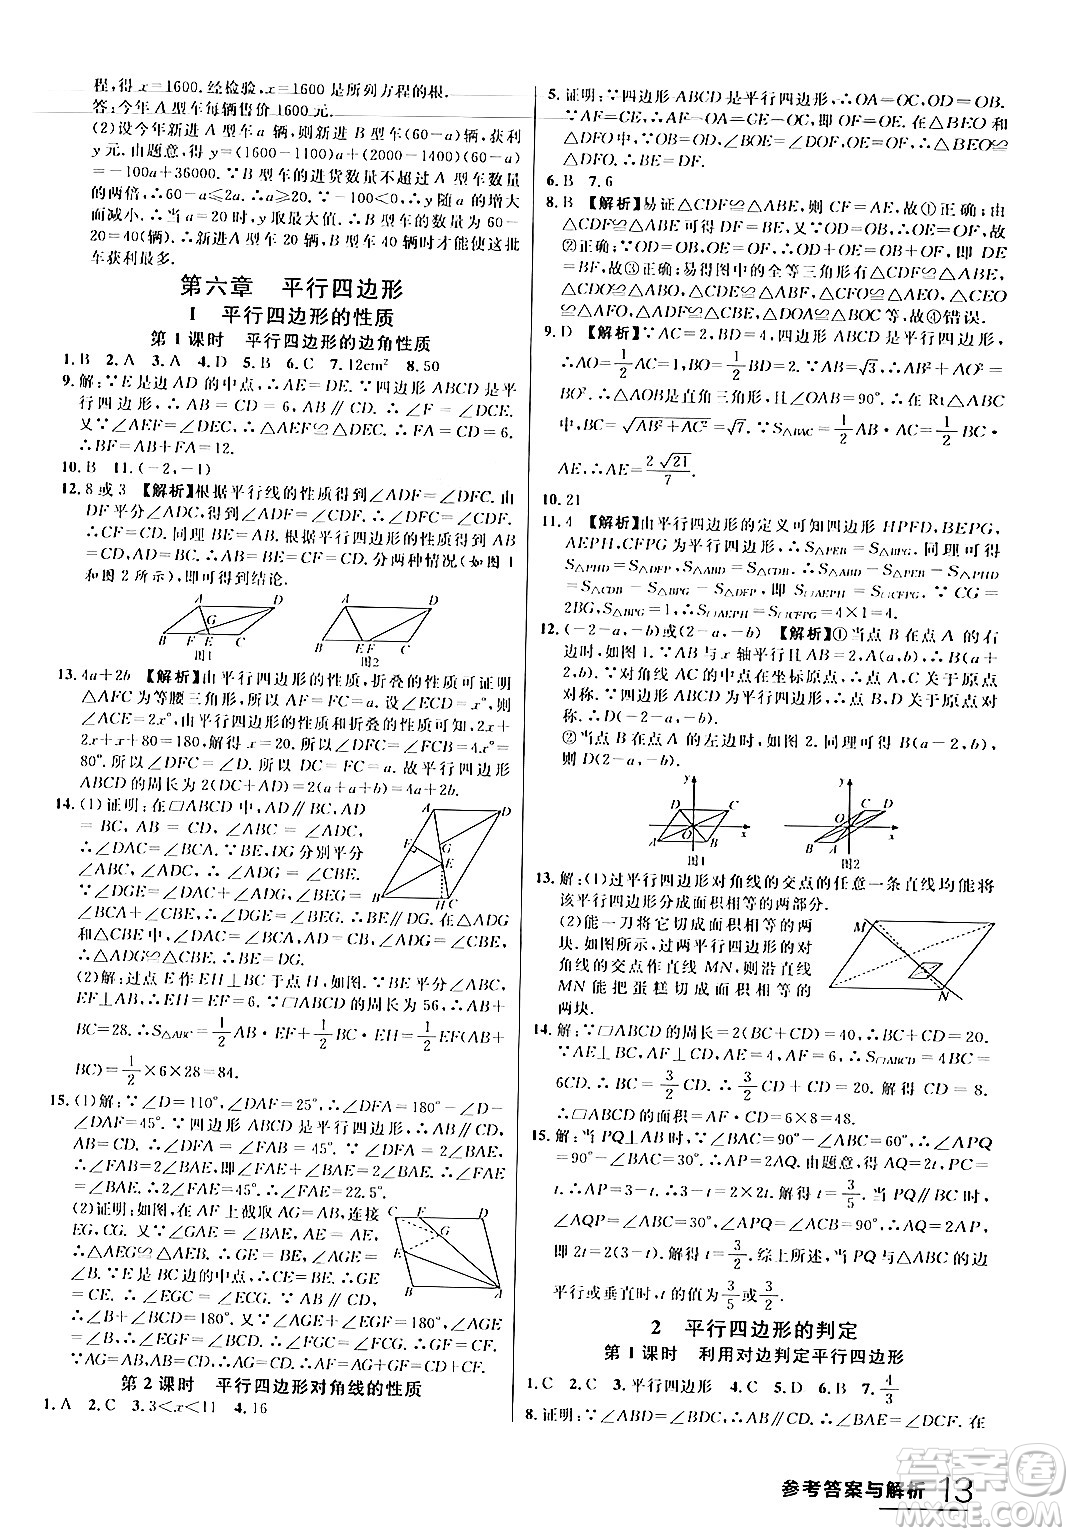 程，得 x＝1600. 经检验，x＝1600 是所列方程的根.
答：今年 A 型车每辆售价 1600 元.
(2)设今年新进 A 型车 a 辆，则新进 B 型车(60－a)辆，获利
y 元. 由题意，得 y＝(1600－1100)a＋(2000－1400)(60－a)
＝－100a＋36000. ∵B 型车的进货数量不超过 A 型车数量
的两倍，∴60－a≤2a. ∴a≥20. ∵－100＜0，∴y 随 a 的增大
而减小. ∴当 a＝20 时，y 取最大值. ∴B 型车的数量为 60－
20＝40(辆). ∴新进 A 型车 20 辆，B 型车 40 辆时才能使这批
车获利最多.
第六章 平行四边形
1 平行四边形的性质
第 1 课时 平行四边形的边角性质
1. B 2. A 3. A 4. D 5. B 6. C 7. 12cm² 8. 50
9. 解：∵E 是边 AD 的中点，∴AE＝DE. ∵四边形 ABCD 是平
行四边形，∴AB＝CD＝6，AB∥CD. ∴∠F＝∠DCE.
又∵∠AEF＝∠DEC，∴△AEF≌△DEC. ∴FA＝CD＝6.
∴BF＝AB＋FA＝12.
10. B 11. (－2，－1)
12. 8 或 3 【解析】根据平行线的性质得到∠ADF＝∠DFC，由
DF 平分∠ADC，得到∠ADF＝∠CDF. ∴∠DFC＝∠CDF.
∴CF＝CD. 同理 BE＝AB. ∵四边形 ABCD 是平行四边形，
∴AB＝CD，AD＝BC. ∴AB＝BE＝CF＝CD. 分两种情况(如图 1
和图 2 所示)，即可得到结论.
A D A D
G
B F E C B E F C
图1 图2
13. 4a＋2b 【解析】由平行四边形的性质，折叠的性质可证明
△AFC 为等腰三角形，所以 AF＝FC＝a. 设∠ECD＝x°，则
∠ACE＝2x°，由平行四边形的性质和折叠的性质可知，2x＋
2x＋x＋80＝180，解得 x＝20. 所以∠DFC＝∠FCD＝4x°＝
80°. 所以 DF＝DC＝b，AD＝a＋b. 所以平行四边形
ABCD 的周长为 2(2b＋2a)＝4a＋2b.
14. (1)证明：在□ABCD 中，AD∥BC，AD
＝BC，AB＝CD，∠ABC＝∠ADC，
∴∠DAC＝∠BCA. ∵BE，DG 分别平分
∠ABC，∠ADC，∴∠ADG＝∠CBE.
∵∠DGE＝∠DAC＋∠ADG，∠BEG＝
∠BCA＋∠CBE，∴∠DGE＝∠BEG. ∴BE∥DG. 在△ADG
和△CBE 中，∠DAG＝∠BCE，AD＝CB，∠ADG＝∠CBE，
∴△ADG≌△CBE. ∴BE＝DG.
A D
F G
E
B H C
(2)解：过点 E 作 EH⊥BC 于点 H，∵BE 平分∠ABC，
EF⊥AB，∴EH＝EF＝6. ∵□ABCD 的周长为 56，∴AB＋
BC＝28. ∴S△ABC＝1/2 AB·EF＋1/2 BC·EH＝1/2 EF(AB＋
BC)＝1/2×6×28＝84.
15. (1)解：∵∠D＝110°，∠DAF＝25°，∴∠DFA＝180°－∠D－
∠DAF＝45°. ∵四边形 ABCD 是平行四边形，∴AB∥CD.
∴∠DFA＝∠FAB＝45°. ∵∠DFA＝2∠BAE，
∴∠FAB＝2∠BAE，即∠FAE＋∠BAE＝2∠BAE. ∴∠FAE
＝∠BAE. ∴2∠FAE＝45°. ∴∠FAE＝22.5°.
(2)证明：如图，在 AF 上截取 AG＝AB，连接
EG，CG. ∵∠GAE＝∠BAE，AE＝AE，
∴△AEG≌△AEB. ∴EG＝BE，∠AGE＝
∠B. ∵E 是 BC 边的中点，∴BE＝CE. ∴GE＝
CE. ∴∠EGC＝∠ECG. ∵AB∥CD，
∴∠B＋∠BCD＝180°. 又∵∠AGE＋∠EGF＝180°，∠AGE
＝∠B，∴∠EGF＝∠BCD. ∴∠FGC＝∠FCG. ∴GF＝CF.
∵AG＝AB，AB＝CD，∴AG＝CD. ∴AF＝AG＋GF＝CD＋CF.
C F D
E G
B A
第 2 课时 平行四边形对角线的性质
1. A 2. C 3. 3＜x＜11 4. 16
5. 证明：∵四边形 ABCD 是平行四边形，∴OA＝OC，OD＝OB.
∵AF＝CE，∴AF－OA＝CE－OC，即 OF＝OE. 在△BEO 和
△DFO 中，∵OB＝OD，∠BOE＝∠DOF，OE＝OF，∴△BEO≌
△DFO. ∴BE＝DF.
6. B 7. 6
8. B 【解析】易证△CDF≌△ABE，所以 CF＝AE，故①正确；由
△CDF≌△ABE 可得 CF∥AE，所以 OE＝OF，故
②正确；由 OB＝OD，OE＝OF，∠DOE＝∠BOF 可证 DE＝
BF，故③正确；易得图中的全等三角形有△CDF≌△ABE，
△CDO≌△ABO，△CDE≌△ABF，△DFO≌△BEO，
△CEO≌△AFO，△CFO≌△AEO，△DFA≌△BEC，
△DOA≌△BOC，故④错误.
9. D 【解析】∵AC＝2，BD＝4，四边形 ABCD 是平行四边形，
∴AO＝1/2 AC＝1，BO＝1/2 BD＝2. ∵AB＝√3，∴AB²＋AO²＝
BO². ∴△BAO是直角三角形，且∠OAB＝90°. ∴在 Rt△ABC
中，BC＝√AB²＋AC²＝√7. ∵S△BAC＝1/2 AB·AC＝1/2 BC·
AE，∴AE＝2√21/7.
10. 21
11. 4 【解析】由平行四边形的定义可知四边形 HPFD，BEPG，
AEPH，CFPG 为平行四边形，∴S△PEB＝S△BPG. 同理可得
S△PHD＝S△DFP，S△ABD＝S△CDB，∴S△ABD－S△PEB－S△PHD
＝S△CDB－S△BPG－S△DFP，即 S□AEPH＝S□CFPG. ∵CG＝
2BG，S△BPG＝1，∴S□AEPH＝S□CFPG＝4×1＝4.
12. (－2－a，－b)或(2－a，－b) 【解析】①当点 B 在点 A 的右
边时，如图 1. ∵AB 与 x 轴平行且 AB＝2，A(a，b)，∴B(a＋2，
b). ∵对角线 AC 的中点在坐标原点，∴点 A，C 关于原点
对称. ∵四边形 ABCD 为平行四边形，∴点 B，D 关于原点对
称. ∴D(－2－a，－b).
②当点 B 在点 A 的左边时，如图 2. 同理可得 B(a－2，b)，
则 D(2－a，－b).
y y
D C D C
O x O x
A B B A
图1 图2
13. 解：(1)过平行四边形对角线的交点的任意一条直线均能将
该平行四边形分成面积相等的两部分.
(2)能一刀将它切成面积相等的两
块. 如图所示，过两平行四边形的对
角线的交点作直线 MN，则沿直线
MN 能把蛋糕切成面积相等的
两块.
M
N
14. 解：∵□ABCD 的周长＝2(BC＋CD)＝40，∴BC＋CD＝20.
∵AE⊥BC，AF⊥CD，AE＝4，AF＝6，∴S□ABCD＝4BC＝
6CD. ∴BC＝3/2 CD. ∴3/2 CD＋CD＝20. 解得 CD＝8.
∴□ABCD 的面积＝AF·CD＝6×8＝48.
15. 解：当 PQ⊥AB 时，∵∠BAC＝90°－∠B＝60°，∴∠APQ
＝90°－∠BAC＝30°. ∴AP＝2AQ. 由题意，得 AQ＝2t，PC＝
t，∴AP＝3－t. ∴3－t＝2×2t. ∴t＝3/5. 当 PQ∥BC 时，
∠AQP＝∠ABC＝90°－∠BAC＝30°，∴AQ＝2AP，
即 2t＝2(3－t). 解得 t＝3/2. 综上所述，当 PQ 与△ABC 的边
平行或垂直时，t 的值为 3/5 或 3/2.
2 平行四边形的判定
第 1 课时 利用对边判定平行四边形
1. C 2. C 3. 平行四边形 4. C 5. D 6. B 7. 4/3
8. 证明：∵AB∥CD，∴∠ABD＝∠BDC，即∠ABE＝∠DCF. 在
参考答案与解析 13
答案圈
MXQE.COM